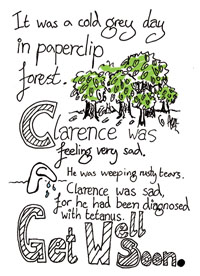 It was a cold grey day
in paperclip
forest.
Clarence was
feeling very sad.
He was weeping rusty tears.
Clarence was sad,
for he had been diagnosed
with tetanus.
Get Well
Soon.